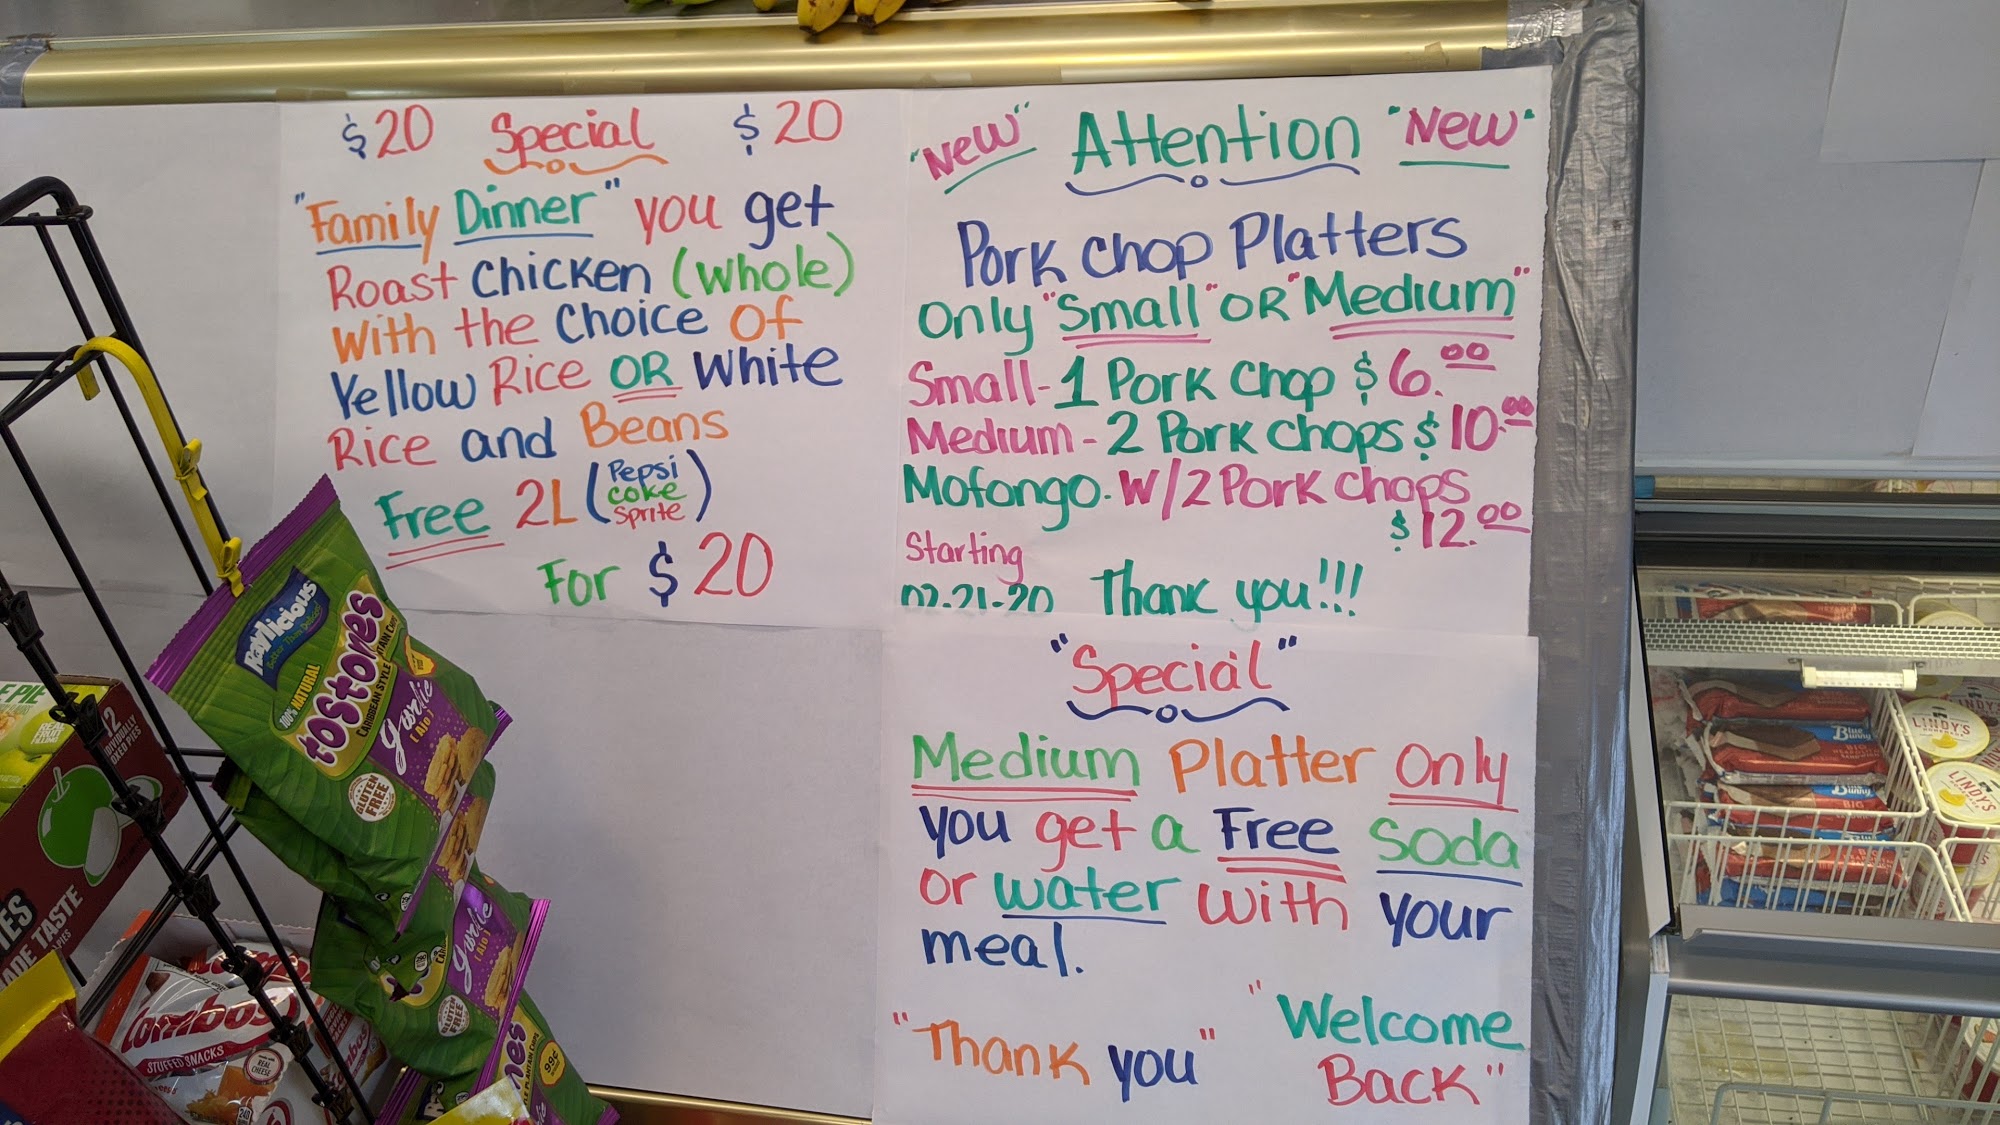 $20 Special $20
"Family Dinner" you get
Roast Chicken (Whole)
With the Choice Of
Yellow Rice OR White
Rice and Beans
Free 2L (Pepsi
Coke
Sprite)
For $20
"New" Attention "New"
Pork Chop Platters
Only "Small" OR "Medium"
Small- 1 Pork Chop $6.00
Medium - 2 Pork Chops $10.00
Mofongo. W/2 Pork Chops
$12.00
Starting
02-21-20 Thank you!!!
"Special"
Medium Platter Only
you get a Free Soda
or water with your
meal.
"Thank you"
"Welcome
Back"
Raylicious
Better Than Delicious
100% NATURAL
tostones
CARIBBEAN STYLE
Garlic
(Ajo)
GLUTEN
FREE
Garlic
(Ajo)
GLUTEN
FREE
99¢
E PIE
REAL
FRUIT
FILLING
12
INDIVIDUALLY
BOXED PIES
IES
ADE TASTE
Combos
STUFFED SNACKS
MADE WITH
REAL
CHEESE
240
Blue
Bunny
BIG
Bunny
BIG
LINDY'S
LINDY'S